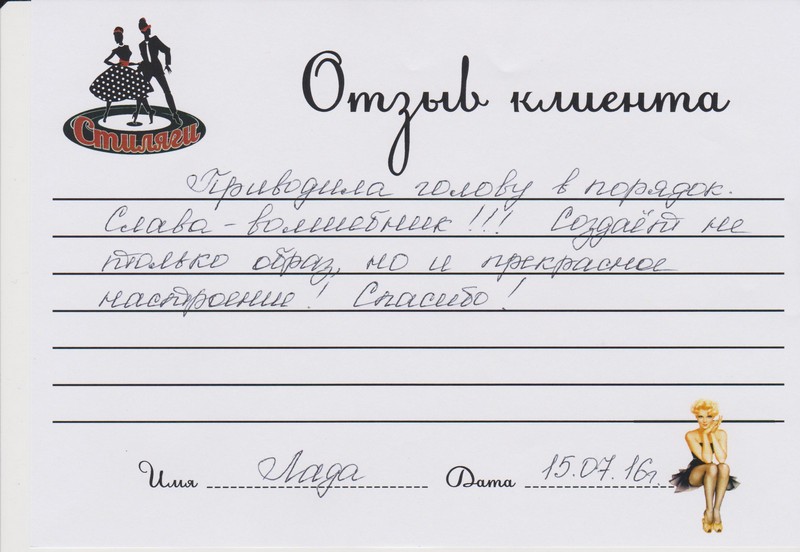 Стиляги
Отзыв клиента
Приводила голову в порядок.
Слава - волшебник!!! Создаёт не
только образ, но и прекрасное
настроение! Спасибо!
Имя Лада Дата 15.07.16г.